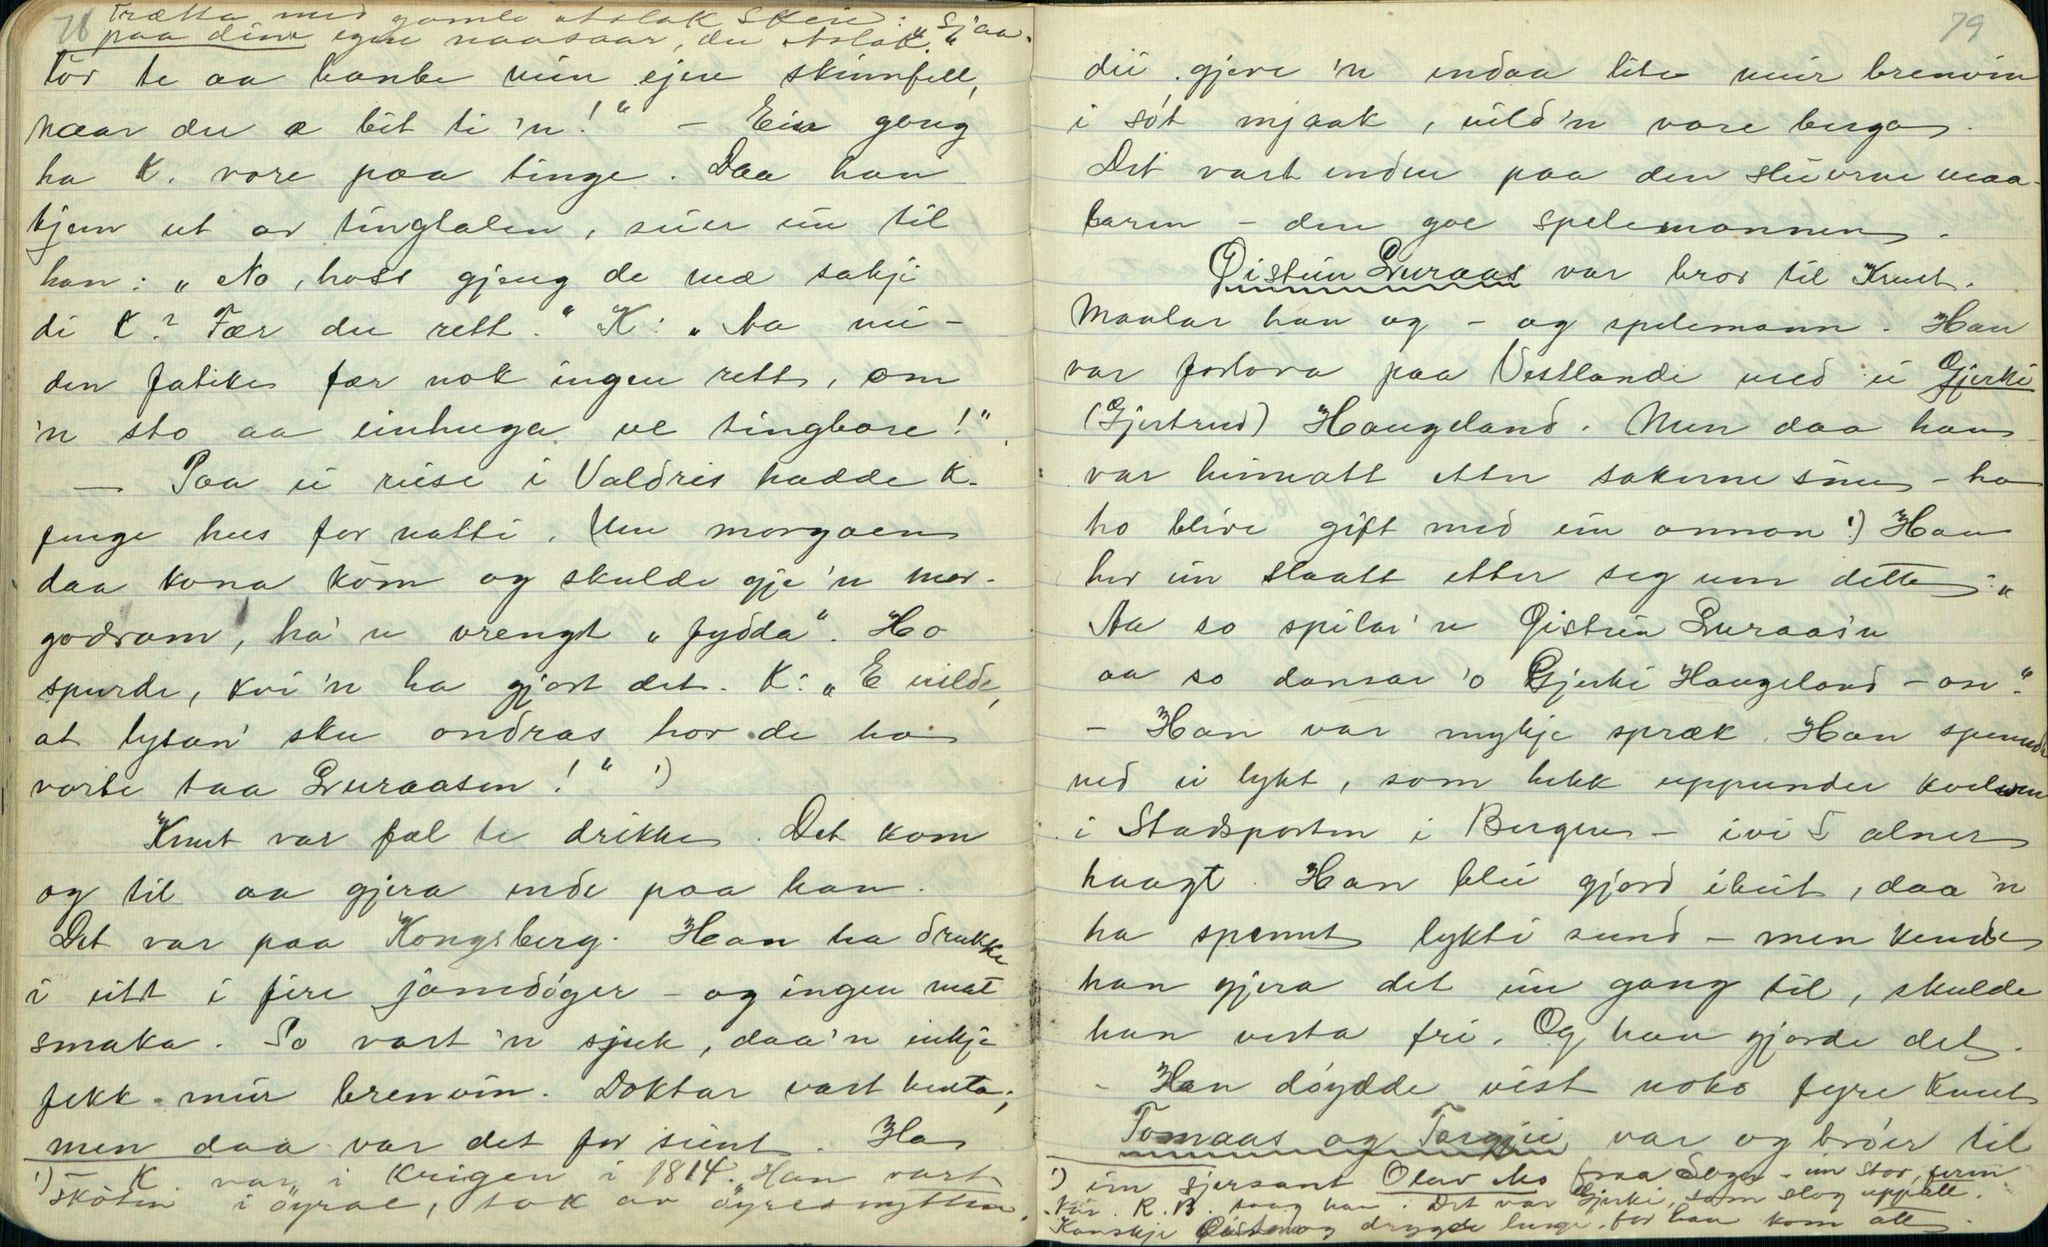 78
Trætta med gamle Aslak Skeie: "Sjaa
paa dine egne naasaar, du Aslak."
Tor te aa banke min ejen skinnfell,
naar du æ bit ti 'n!" – Ein gong
ha K. vore paa tinge. Daa han
kjem ut or tingstalen, sier ein til
han: "No, hoss gjeng de mæ sakji
di K? Fær du rett." K: "Aa nei –
den fatike fær nok ingen rett, om
'n sto aa einhuga ve tingbore!"
– Paa ei reise i Valdris hadde K.
fenge hus for natti. Um morgoen
daa kona kom og skulde gje 'n mor-
godram, ha 'n vrengt "fydda". Ho
spurde, kvi 'n ha gjort det. K: "E vilde,
at lysan' sku ondras hor de ha
vorte taa Luraasen!" 1)
Knut var fæl te drikke. Det kom
og til aa gjera ende paa han.
Det var paa Kongsberg. Han ha drukke
i eitt i fire jamdøger – og ingen mat
smaka. So vart 'n sjuk, daa 'n inkje
fekk meir brenvin. Doktar vart henta;
men daa var det for seint. Ha
1) K. var i Krigen i 1814. Han vart
skoten i øyrae, tok av øyresnytten.
79
dei gjeve 'n endaa lite meir brenvin
i søt mjaak, vild 'n vore berga.
Det vart enden paa den sleivrne maa-
laren – den goe spelemannen.
Øistein Luraas var bror til Knut.
Maalar han og – og spelemann. Han
var forlova paa Vestlande med ei Gjerki
(Gjertrud) Haugeland. Men daa han
var heimatt etter sakerne sine – ha
ho blive gift med ein annan 1) Han
her ein slaatt etter seg um dette: "
Aa so spilar 'n Øistein Luraas'n
aa so dansar 'o Gjerki Haugeland – on".
– Han var mykje spræk. Han spennde
ned ei lykt, som hekk uppunder kvelven
i Stadsporten i Bergen – ivi 5 alner
haagt. Han blei gjord ibeit, daa 'n
ha spennt lykti sund – men kunde
han gjera det ein gang til, skulde
han verta fri. Og han gjorde det.
– Han døydde vist noko fyre Knut
Tomaas og Targjei var og brør til
1) ein sjersant Olav Mo fraa Sogn – ein stor, ferm
kar. K. B. saag han. Det var Gjerki, som slog uppatt.
Kanskje Øistein og drygde lenge, for han kom att.